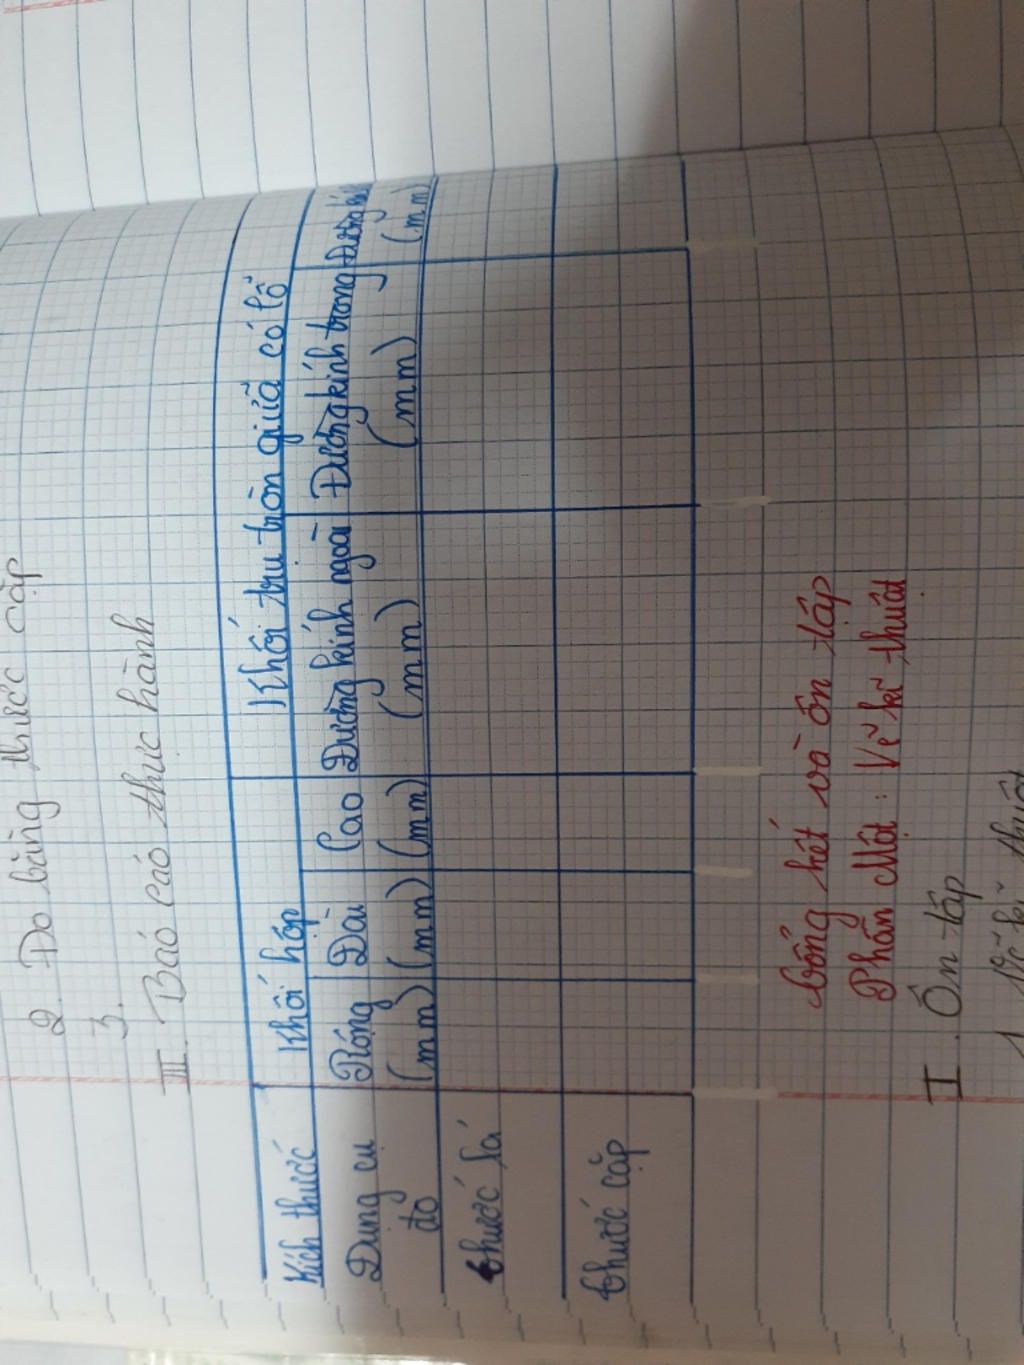 2. Đo bằng thước cặp
3.
III. Báo cáo thực hành
Kích thước Khối hộp Khối trụ tròn giữa có lỗ
Dụng cụ Rộng Dài Cao Đường kính ngoài Đường kính trong
đo (mm) (mm) (mm) (mm) (mm) (mm)
thước lá
thước cặp
Tổng kết và ôn tập
Phần Một: Vẽ kĩ thuật
I. Ôn tập
1. Vẽ kĩ thuật